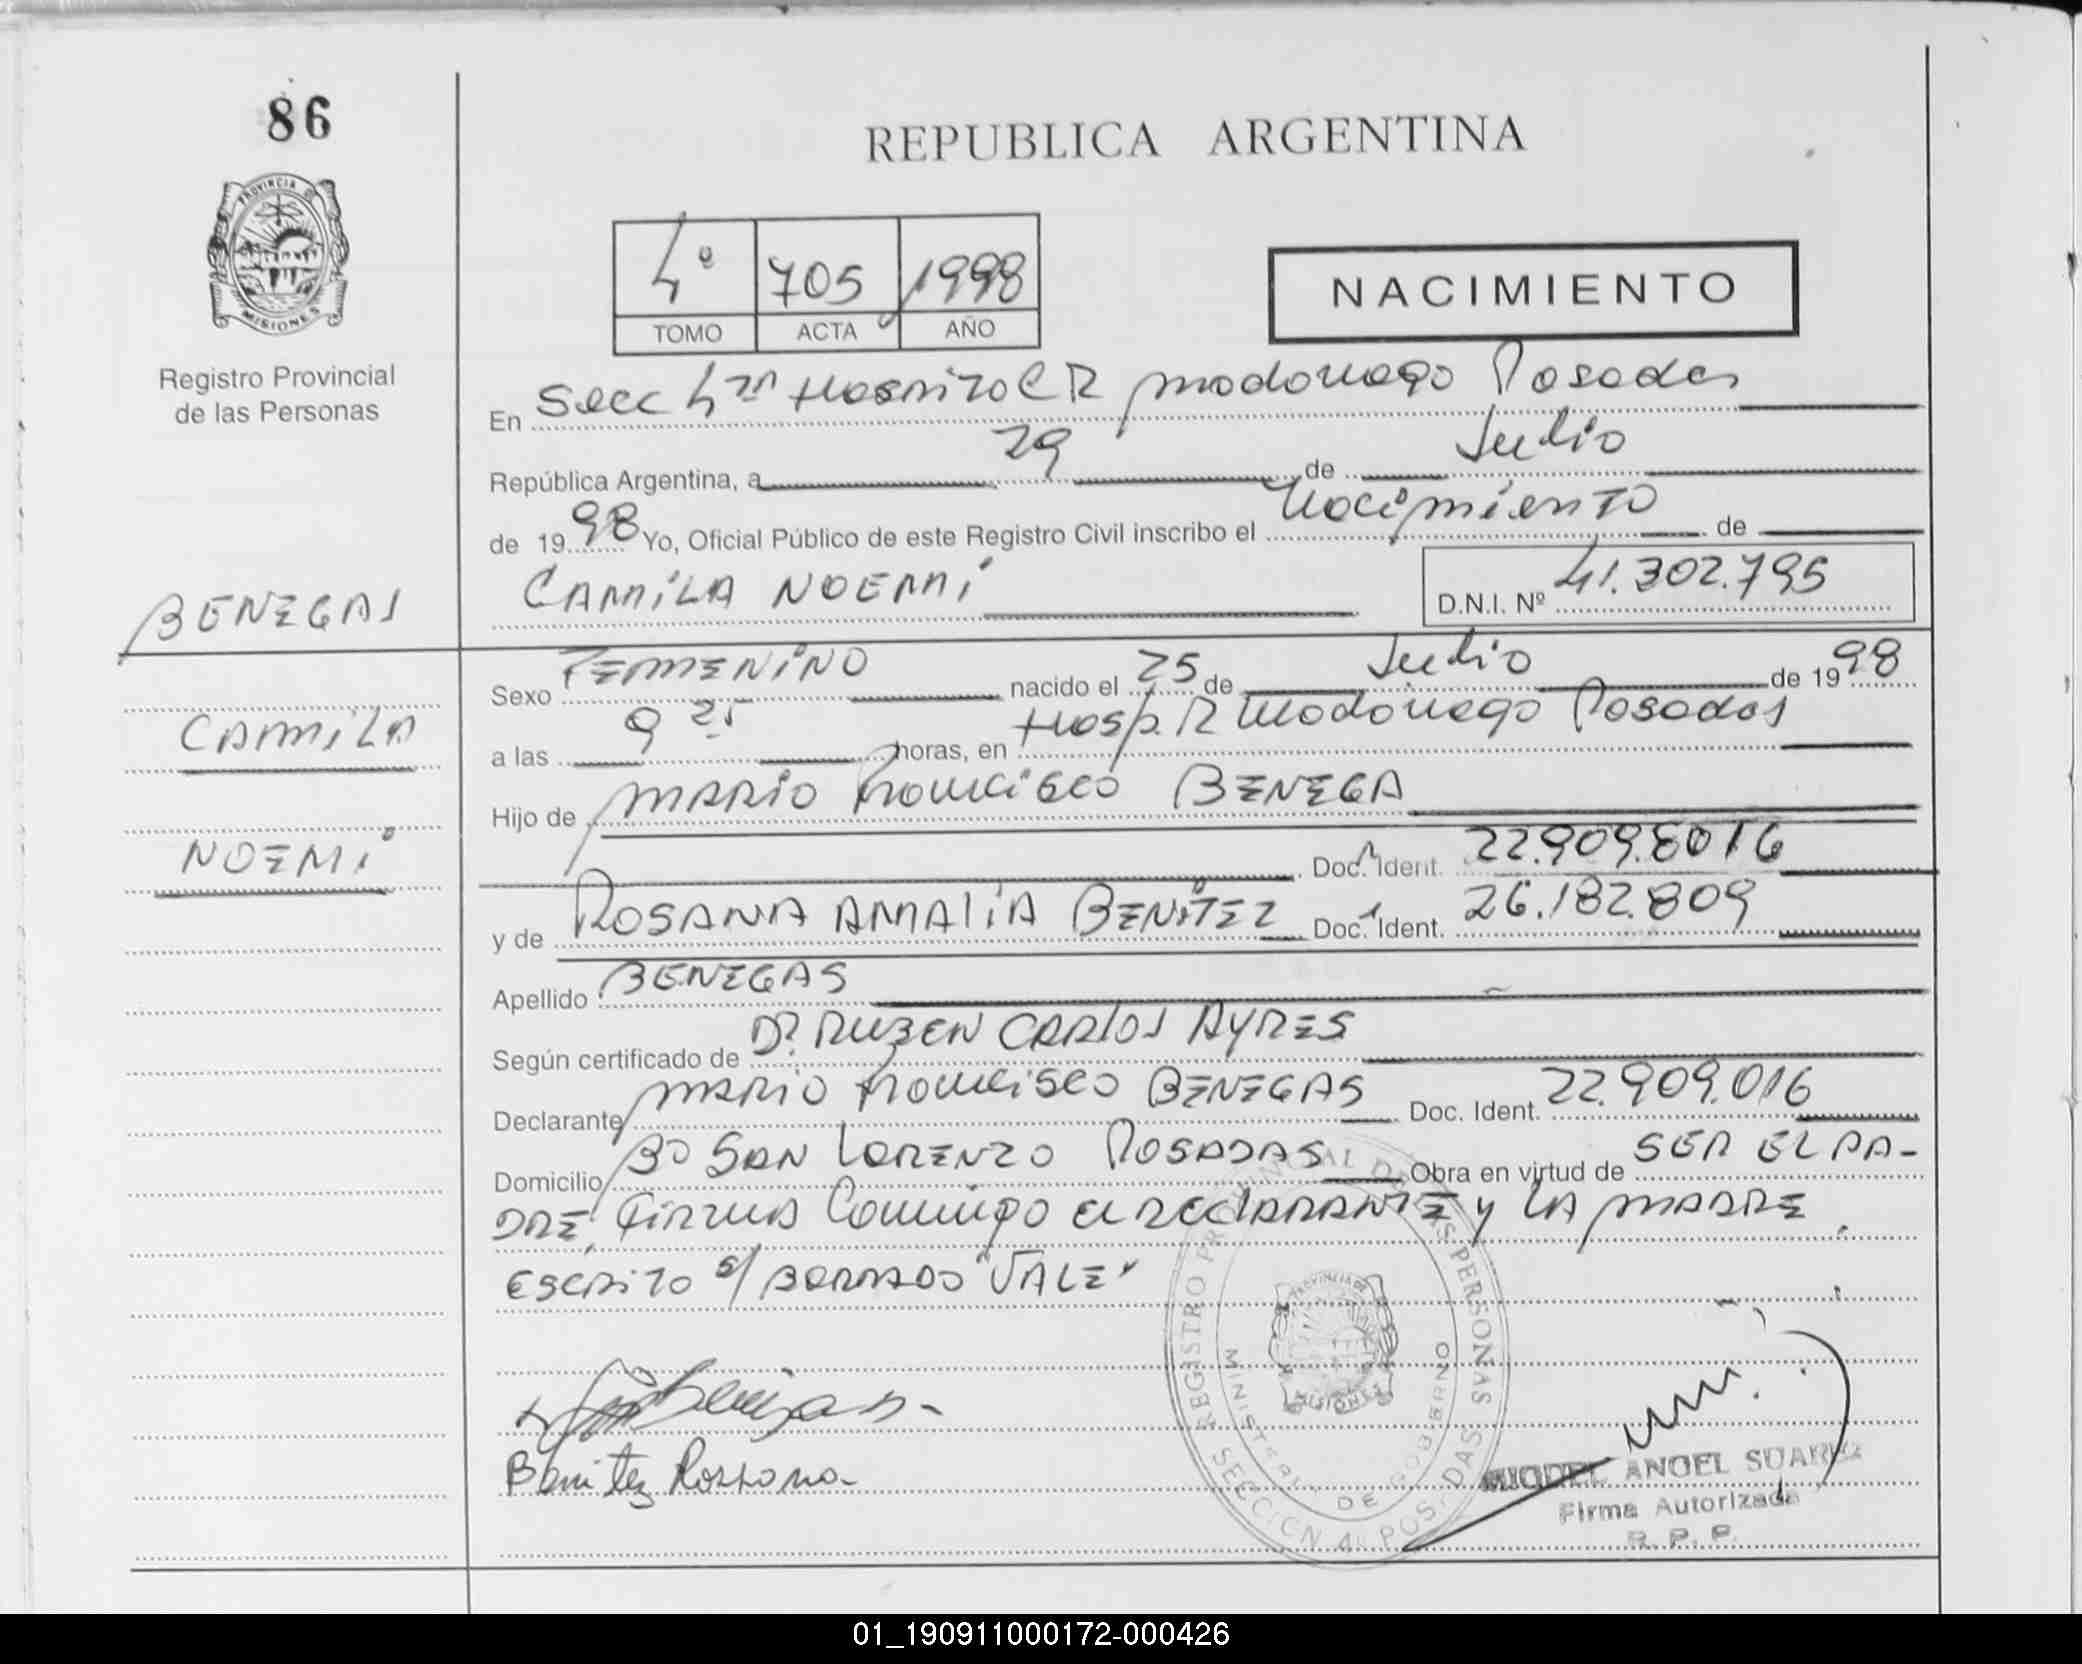 86
REPUBLICA ARGENTINA
PROVINCIA DE
MISIONES
Registro Provincial
de las Personas
4º 705 1998
TOMO ACTA AÑO
NACIMIENTO
En Secc 4ta Hospital R Madariaga Posadas
República Argentina, a 29 de Julio
de 1998 Yo, Oficial Público de este Registro Civil inscribo el Nacimiento de
CAMILA NOEMI D.N.I. Nº 41.302.795
BENEGAS
CAMILA
NOEMI
Sexo FEMENINO nacido el 25 de Julio de 1998
a las 9 25 horas, en Hosp. R Madariaga Posadas
Hijo de MARIO Francisco BENEGA
Doc. Ident. 22.909.8016
y de ROSANA AMALIA BENITEZ Doc. Ident. 26.182.809
Apellido BENEGAS
Según certificado de Dr. RUBEN CARLOS AYRES
Declarante MARIO Francisco BENEGAS Doc. Ident. 22.909.016
Domicilio Bº SAN LORENZO POSADAS Obra en virtud de SER EL PA-
DRE, FIRMAN Conmigo el declARANTE y LA MADRE.
ESCRITO s/ BORRADO "VALE"
Benitez Rossana
REGISTRO PROVINCIAL DE LAS PERSONAS
MINISTERIO DE GOBIERNO
PROVINCIA DE
MISIONES
SECCION 4a POSADAS
MIGUEL ANGEL SUAREZ
Firma Autorizada
R. P. P.
01_190911000172-000426